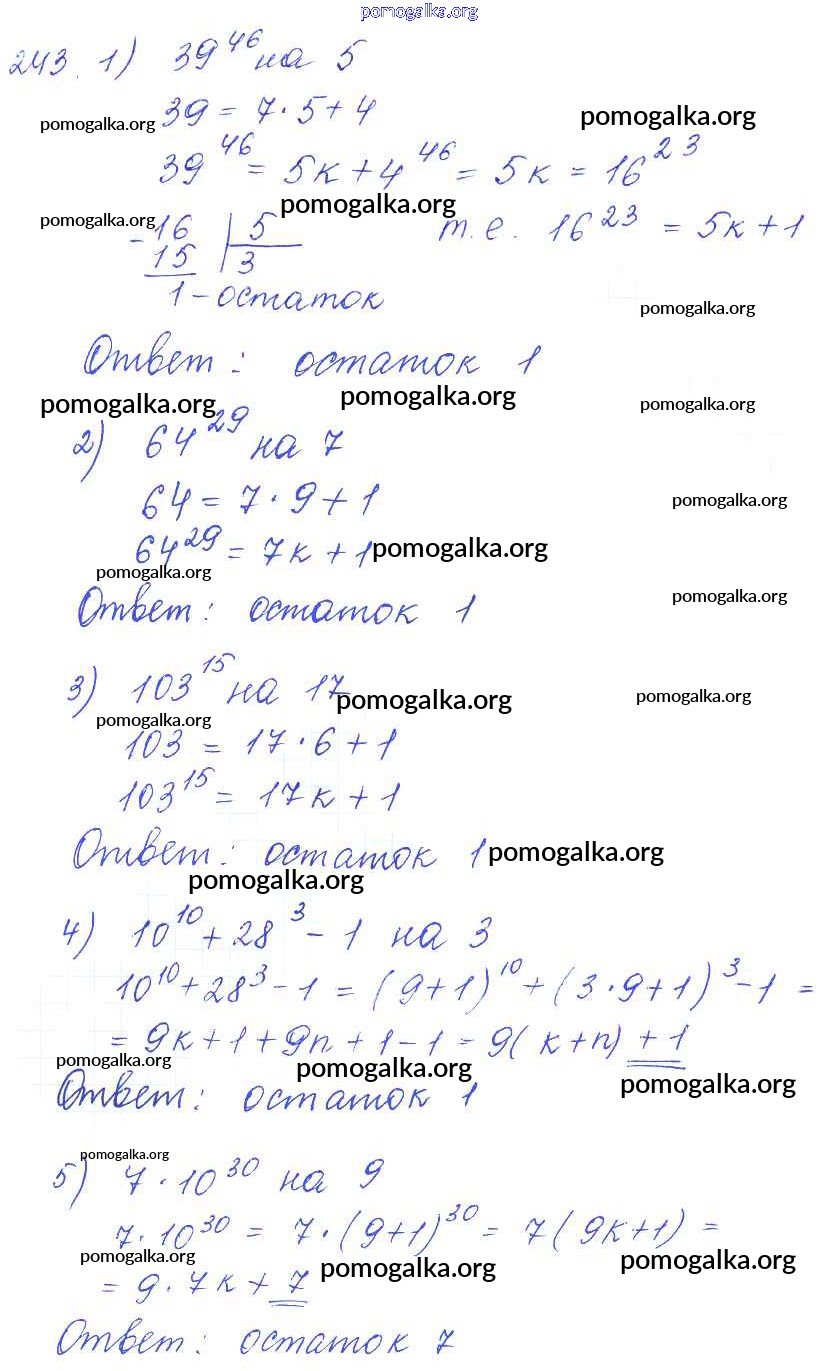 pomogalka.org
243. 1) 39^46 на 5
39 = 7·5+4
pomogalka.org pomogalka.org
39^46 = 5к + 4^46 = 5к = 16^23
pomogalka.org pomogalka.org
- 16 | 5 т.е. 16^23 = 5к+1
15 | 3
1 - остаток
pomogalka.org
Ответ: остаток 1
pomogalka.org pomogalka.org pomogalka.org
2) 64^29 на 7
64 = 7·9+1
pomogalka.org
64^29 = 7к + 1
pomogalka.org
pomogalka.org
Ответ: остаток 1
pomogalka.org
3) 103^15 на 17
pomogalka.org pomogalka.org
pomogalka.org
103 = 17·6+1
103^15 = 17к + 1
Ответ: остаток 1
pomogalka.org
pomogalka.org
4) 10^10 + 28^3 - 1 на 3
10^10 + 28^3 - 1 = (9+1)^10 + (3·9+1)^3 - 1 =
= 9к + 1 + 9n + 1 - 1 = 9(к+n) + 1
pomogalka.org pomogalka.org pomogalka.org
Ответ: остаток 1
pomogalka.org
5) 7·10^30 на 9
7·10^30 = 7·(9+1)^30 = 7(9к+1) =
pomogalka.org pomogalka.org pomogalka.org
= 9·7к + 7
Ответ: остаток 7